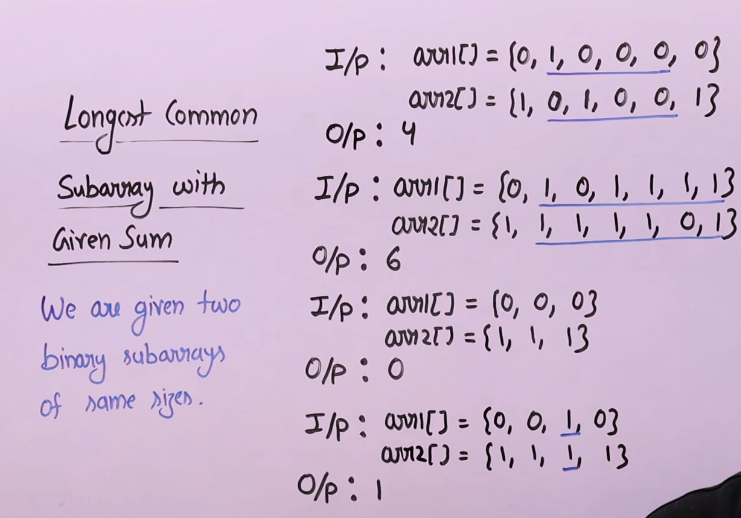 Longest Common
Subarray with
Given Sum
We are given two
binary subarrays
of same sizes.
I/p : arr1[] = {0, 1, 0, 0, 0, 0}
arr2[] = {1, 0, 1, 0, 0, 1}
O/p : 4
I/p : arr1[] = {0, 1, 0, 1, 1, 1, 1}
arr2[] = {1, 1, 1, 1, 1, 0, 1}
O/p : 6
I/p : arr1[] = {0, 0, 0}
arr2[] = {1, 1, 1}
O/p : 0
I/p : arr1[] = {0, 0, 1, 0}
arr2[] = {1, 1, 1, 1}
O/p : 1